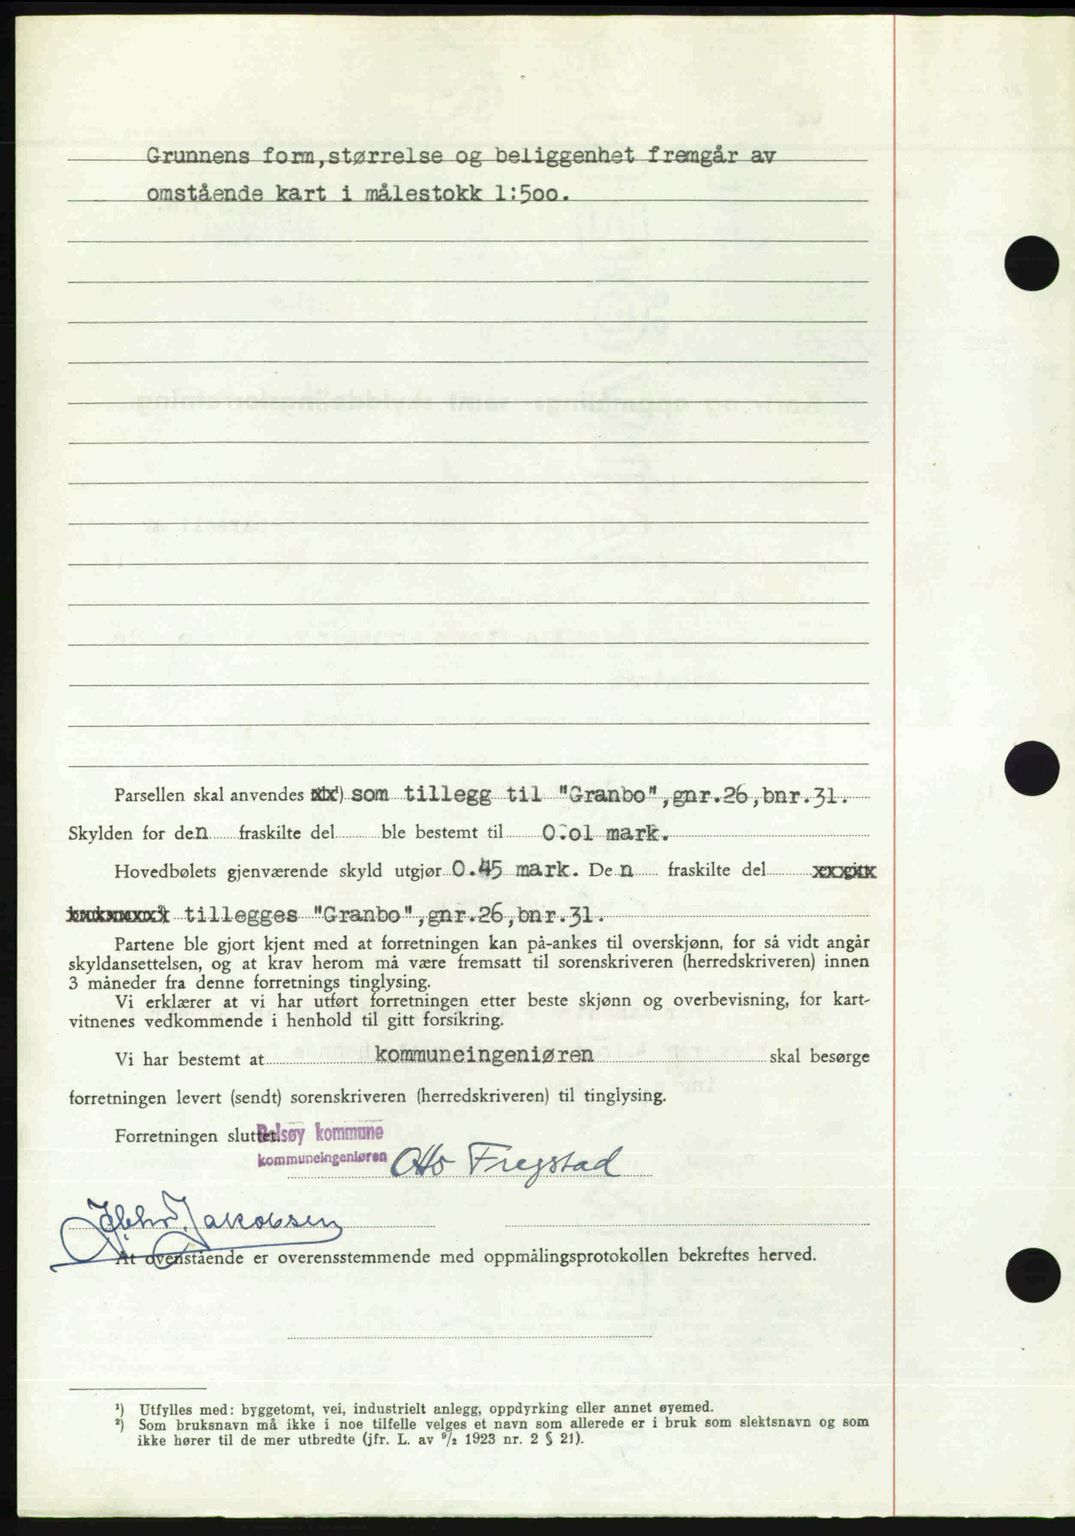 Grunnens form,størrelse og beliggenhet fremgår av
omstående kart i målestokk 1:500.
Parsellen skal anvendes ¹) som tillegg til "Granbo",gnr.26,bnr.31.
Skylden for den fraskilte del ble bestemt til 0.01 mark.
Hovedbølets gjenværende skyld utgjør 0.45 mark. Den fraskilte del
tillegges "Granbo",gnr.26,bnr.31.
Partene ble gjort kjent med at forretningen kan på-ankes til overskjønn, for så vidt angår
skyldansettelsen, og at krav herom må være fremsatt til sorenskriveren (herredskriveren) innen
3 måneder fra denne forretnings tinglysing.
Vi erklærer at vi har utført forretningen etter beste skjønn og overbevisning, for kart-
vitnenes vedkommende i henhold til gitt forsikring.
Vi har bestemt at kommuneingeniøren skal besørge
forretningen levert (sendt) sorenskriveren (herredskriveren) til tinglysing.
Forretningen sluttet. Bolsøy kommune
kommuneingeniøren Otto Fregstad
Jakobsen
At ovenstående er overensstemmende med oppmålingsprotokollen bekreftes herved.
¹) Utfylles med: byggetomt, vei, industrielt anlegg, oppdyrking eller annet øyemed.
²) Som bruksnavn må ikke i noe tilfelle velges et navn som allerede er i bruk som slektsnavn og som
ikke hører til de mer utbredte (jfr. L. av ⁹/₂ 1923 nr. 2 § 21).